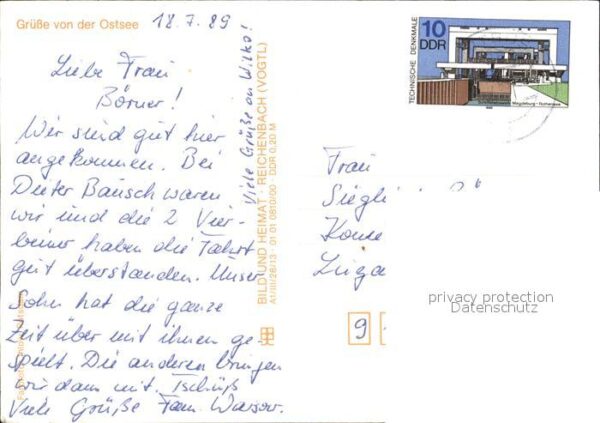 Grüße von der Ostsee 18.7.89
Liebe Frau
Börner!
Wir sind gut hier
angekommen. Bei
Dieter Bausch waren
wir und die 2 Vier-
beiner haben die Fahrt
gut überstanden. Unser
Sohn hat die ganze
Zeit über mit ihnen ge-
spielt. Die anderen bringen
wir dann mit. Tschüß
Viele Grüße Fam. Warsow.
Viele Grüße an Wilko!
BILD UND HEIMAT · REICHENBACH (VOGTL)
A1/III/26/13 · 01 01 0810/00 · DDR 0,20 M
TECHNISCHE DENKMALE
10
DDR
Magdeburg - Rothensee
Frau
Siegli
Konne
9
privacy protection
Datenschutz